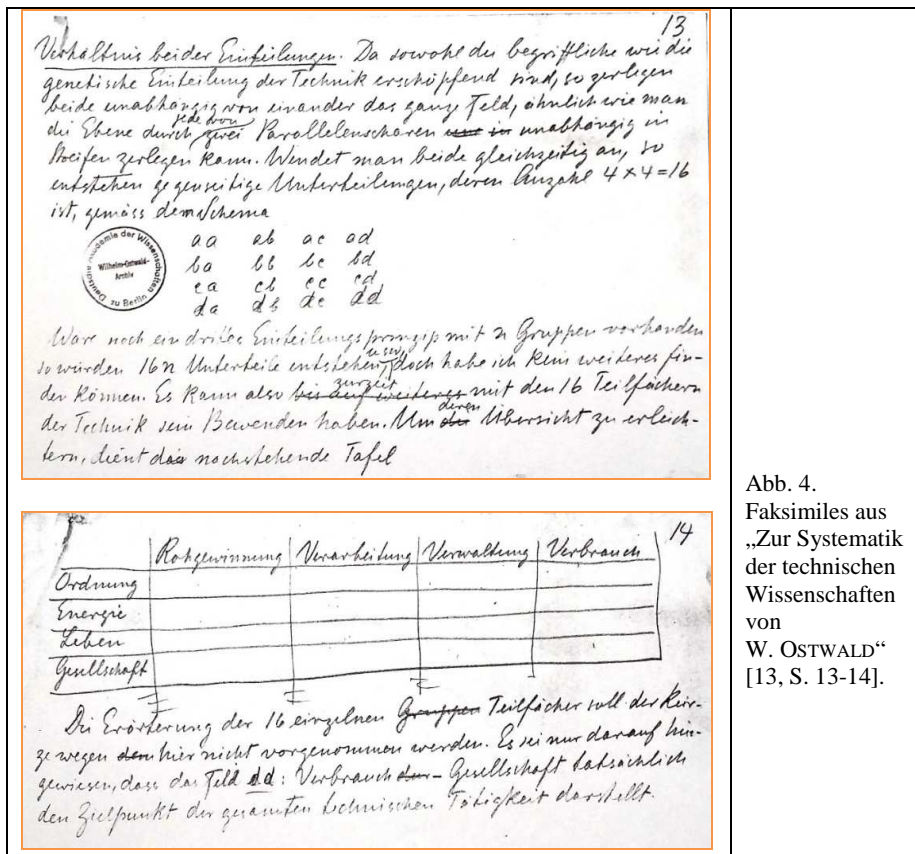 13
Verhältnis beider Einteilungen. Da sowohl die begriffliche wie die
genetische Einteilung der Technik erschöpfend sind, so zerlegen
beide unabhängig von einander das ganze Feld, ähnlich wie man
jede von
die Ebene durch zwei Parallelenscharen und in unabhängig in
Streifen zerlegen kann. Wendet man beide gleichzeitig an, so
entstehen gegenseitige Unterteilungen, deren Anzahl 4 x 4 = 16
ist, gemäss dem Schema
aa ab ac ad
ba bb bc bd
ca cb cc cd
da db dc dd
Deutsche Akademie der Wissenschaften zu Berlin
Wilhelm-Ostwald-
Archiv
Wäre noch ein drittes Einteilungsprinzip mit n Gruppen vorhanden
so würden 16n Unterteile entstehen, usw. doch habe ich kein weiteres fin-
zurzeit
den können. Es kann also bis auf weiteres mit den 16 Teilfächern
deren
der Technik sein Bewenden haben. Um die Übersicht zu erleich-
tern, dient die nachstehende Tafel
14
Rohgewinnung Verarbeitung Verwaltung Verbrauch
Ordnung
Energie
Leben
Gesellschaft
Die Erörterung der 16 einzelnen Gruppen Teilfächer soll der Kür-
ze wegen hier nicht vorgenommen werden. Es sei nur darauf hin-
gewiesen, dass das Feld dd: Verbrauch der - Gesellschaft tatsächlich
den Zielpunkt der gesamten technischen Tätigkeit darstellt.
Abb. 4.
Faksimiles aus
„Zur Systematik
der technischen
Wissenschaften
von
W. OSTWALD“
[13, S. 13-14].